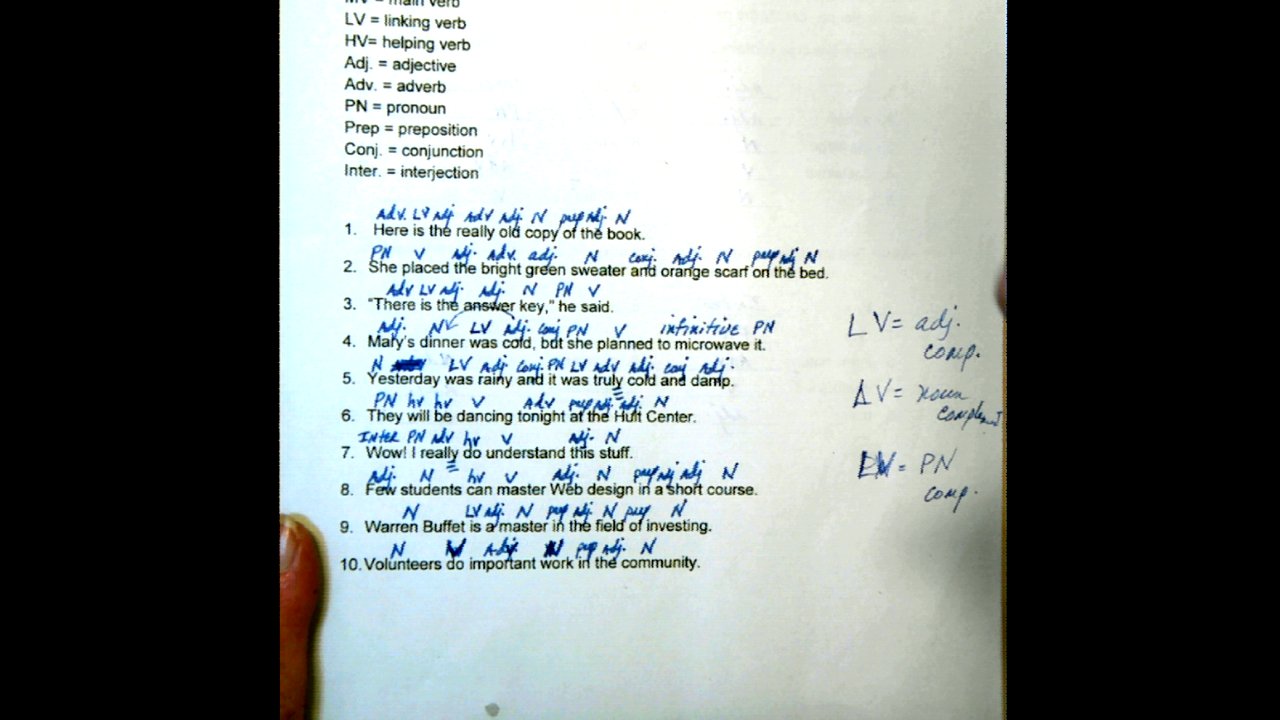 MV = main verb
LV = linking verb
HV= helping verb
Adj. = adjective
Adv. = adverb
PN = pronoun
Prep = preposition
Conj. = conjunction
Inter. = interjection
Adv. LV adj. Adv adj. N prep adj. N
1. Here is the really old copy of the book.
PN V adj. Adv. adj. N conj. adj. N prep adj N
2. She placed the bright green sweater and orange scarf on the bed.
Adv LV adj. adj. N PN V
3. “There is the answer key,” he said.
Adj. N LV adj. conj PN V infinitive PN
4. Mary's dinner was cold, but she planned to microwave it.
N LV Adj conj. PN LV Adv Adj. conj Adj.
5. Yesterday was rainy and it was truly cold and damp.
PN hv hv V Adv prep adj. adj. N
6. They will be dancing tonight at the Hult Center.
Inter PN Adv hv V adj. N
7. Wow! I really do understand this stuff.
Adj. N hv V Adj. N prep adj adj N
8. Few students can master Web design in a short course.
N LV adj. N prep adj. N prep N
9. Warren Buffet is a master in the field of investing.
N V Adj N prep adj. N
10. Volunteers do important work in the community.
LV= adj.
comp.
LV= noun
complement
LV= PN
comp.